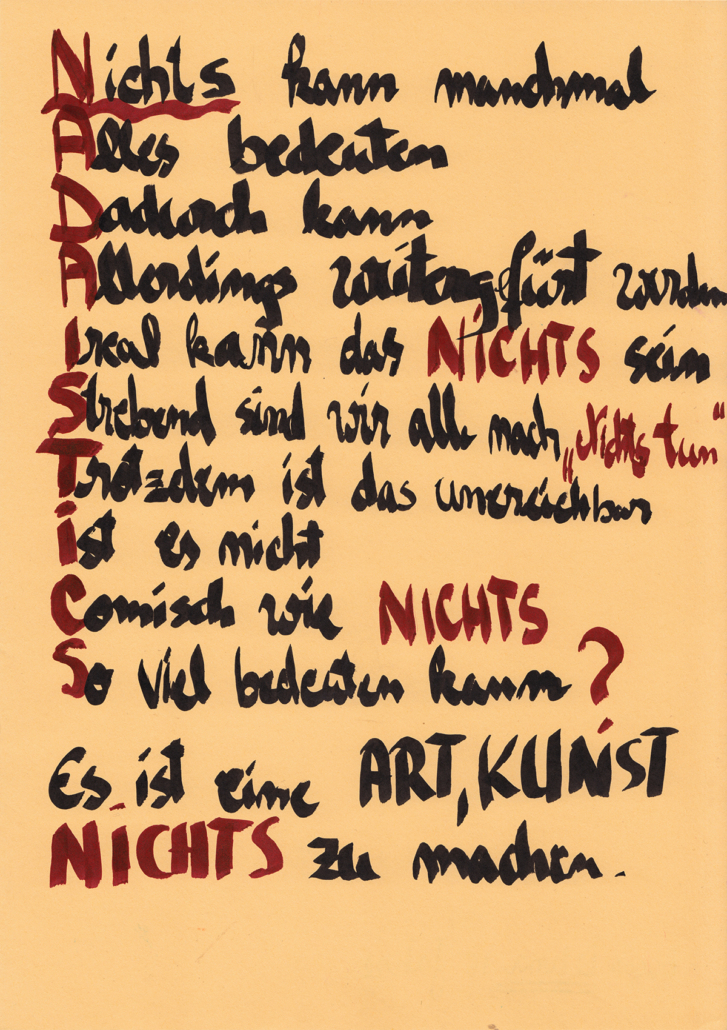 Nichts kann manchmal
Alles bedeuten
Dadurch kann
Allerdings weitergefürt werden
Ireal kann das NiCHTS sein
Strebend sind wir alle nach „Nichts tun“
Trotzdem ist das unereichbar
ist es nicht
Comisch wie NICHTS
So viel bedeuten kann?
Es ist eine ART, KUNST
NiCHTS zu machen.